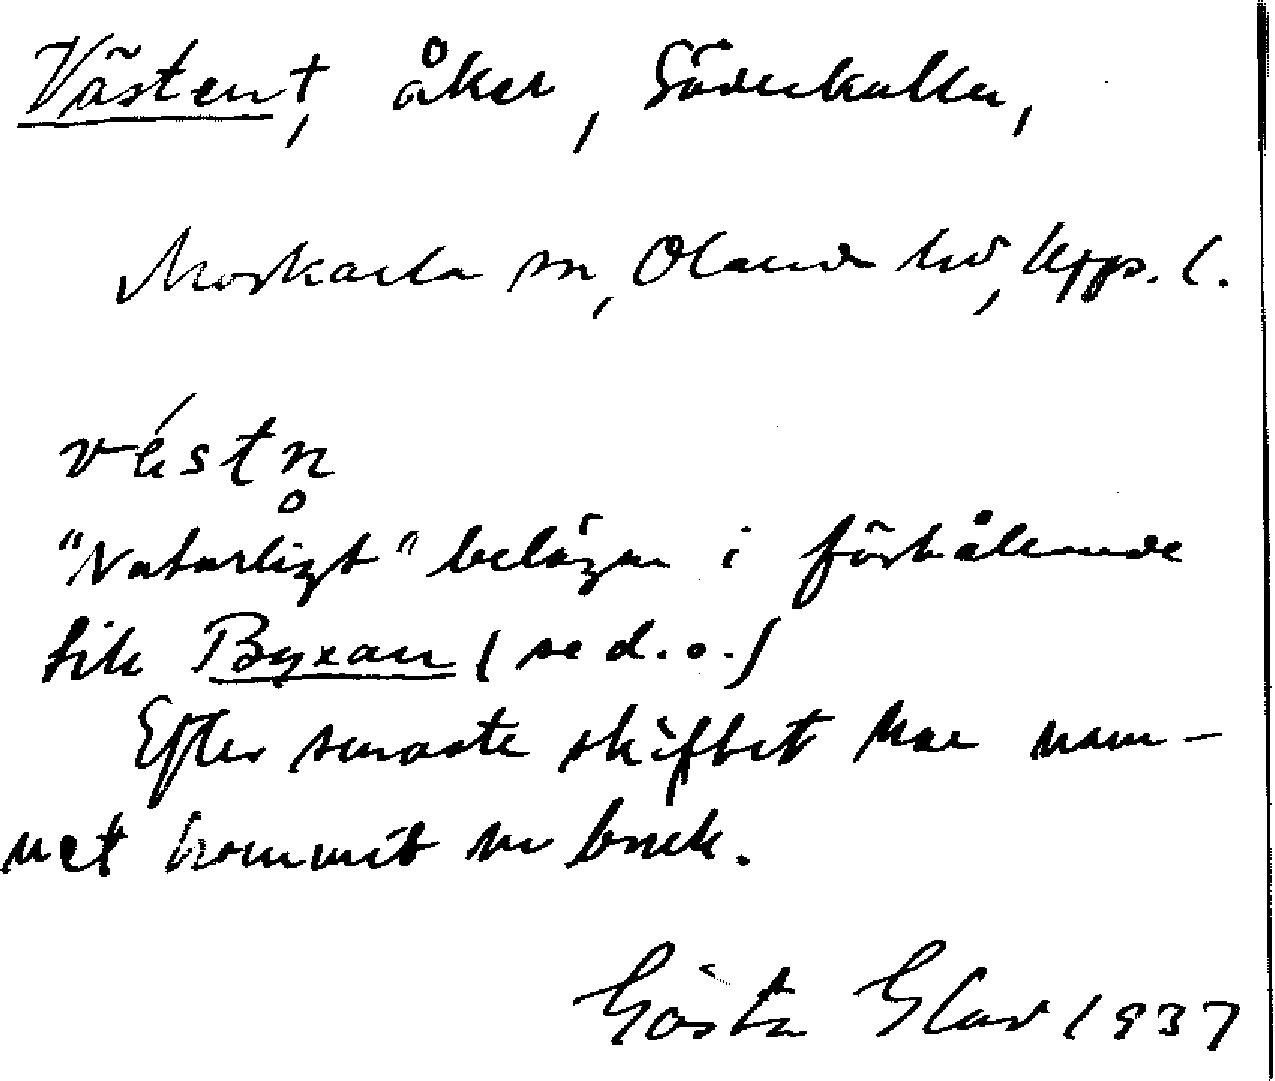 Västen†, åker, Söderkulla,
Morkarla sn, Olands hd, Upps. l.
vä́stn̥
"Naturligt" belägen i förhållande
till Byxan (se d.o.)
Efter senaste skiftet har nam-
net kommit ur bruk.
Gösta Elav 1937